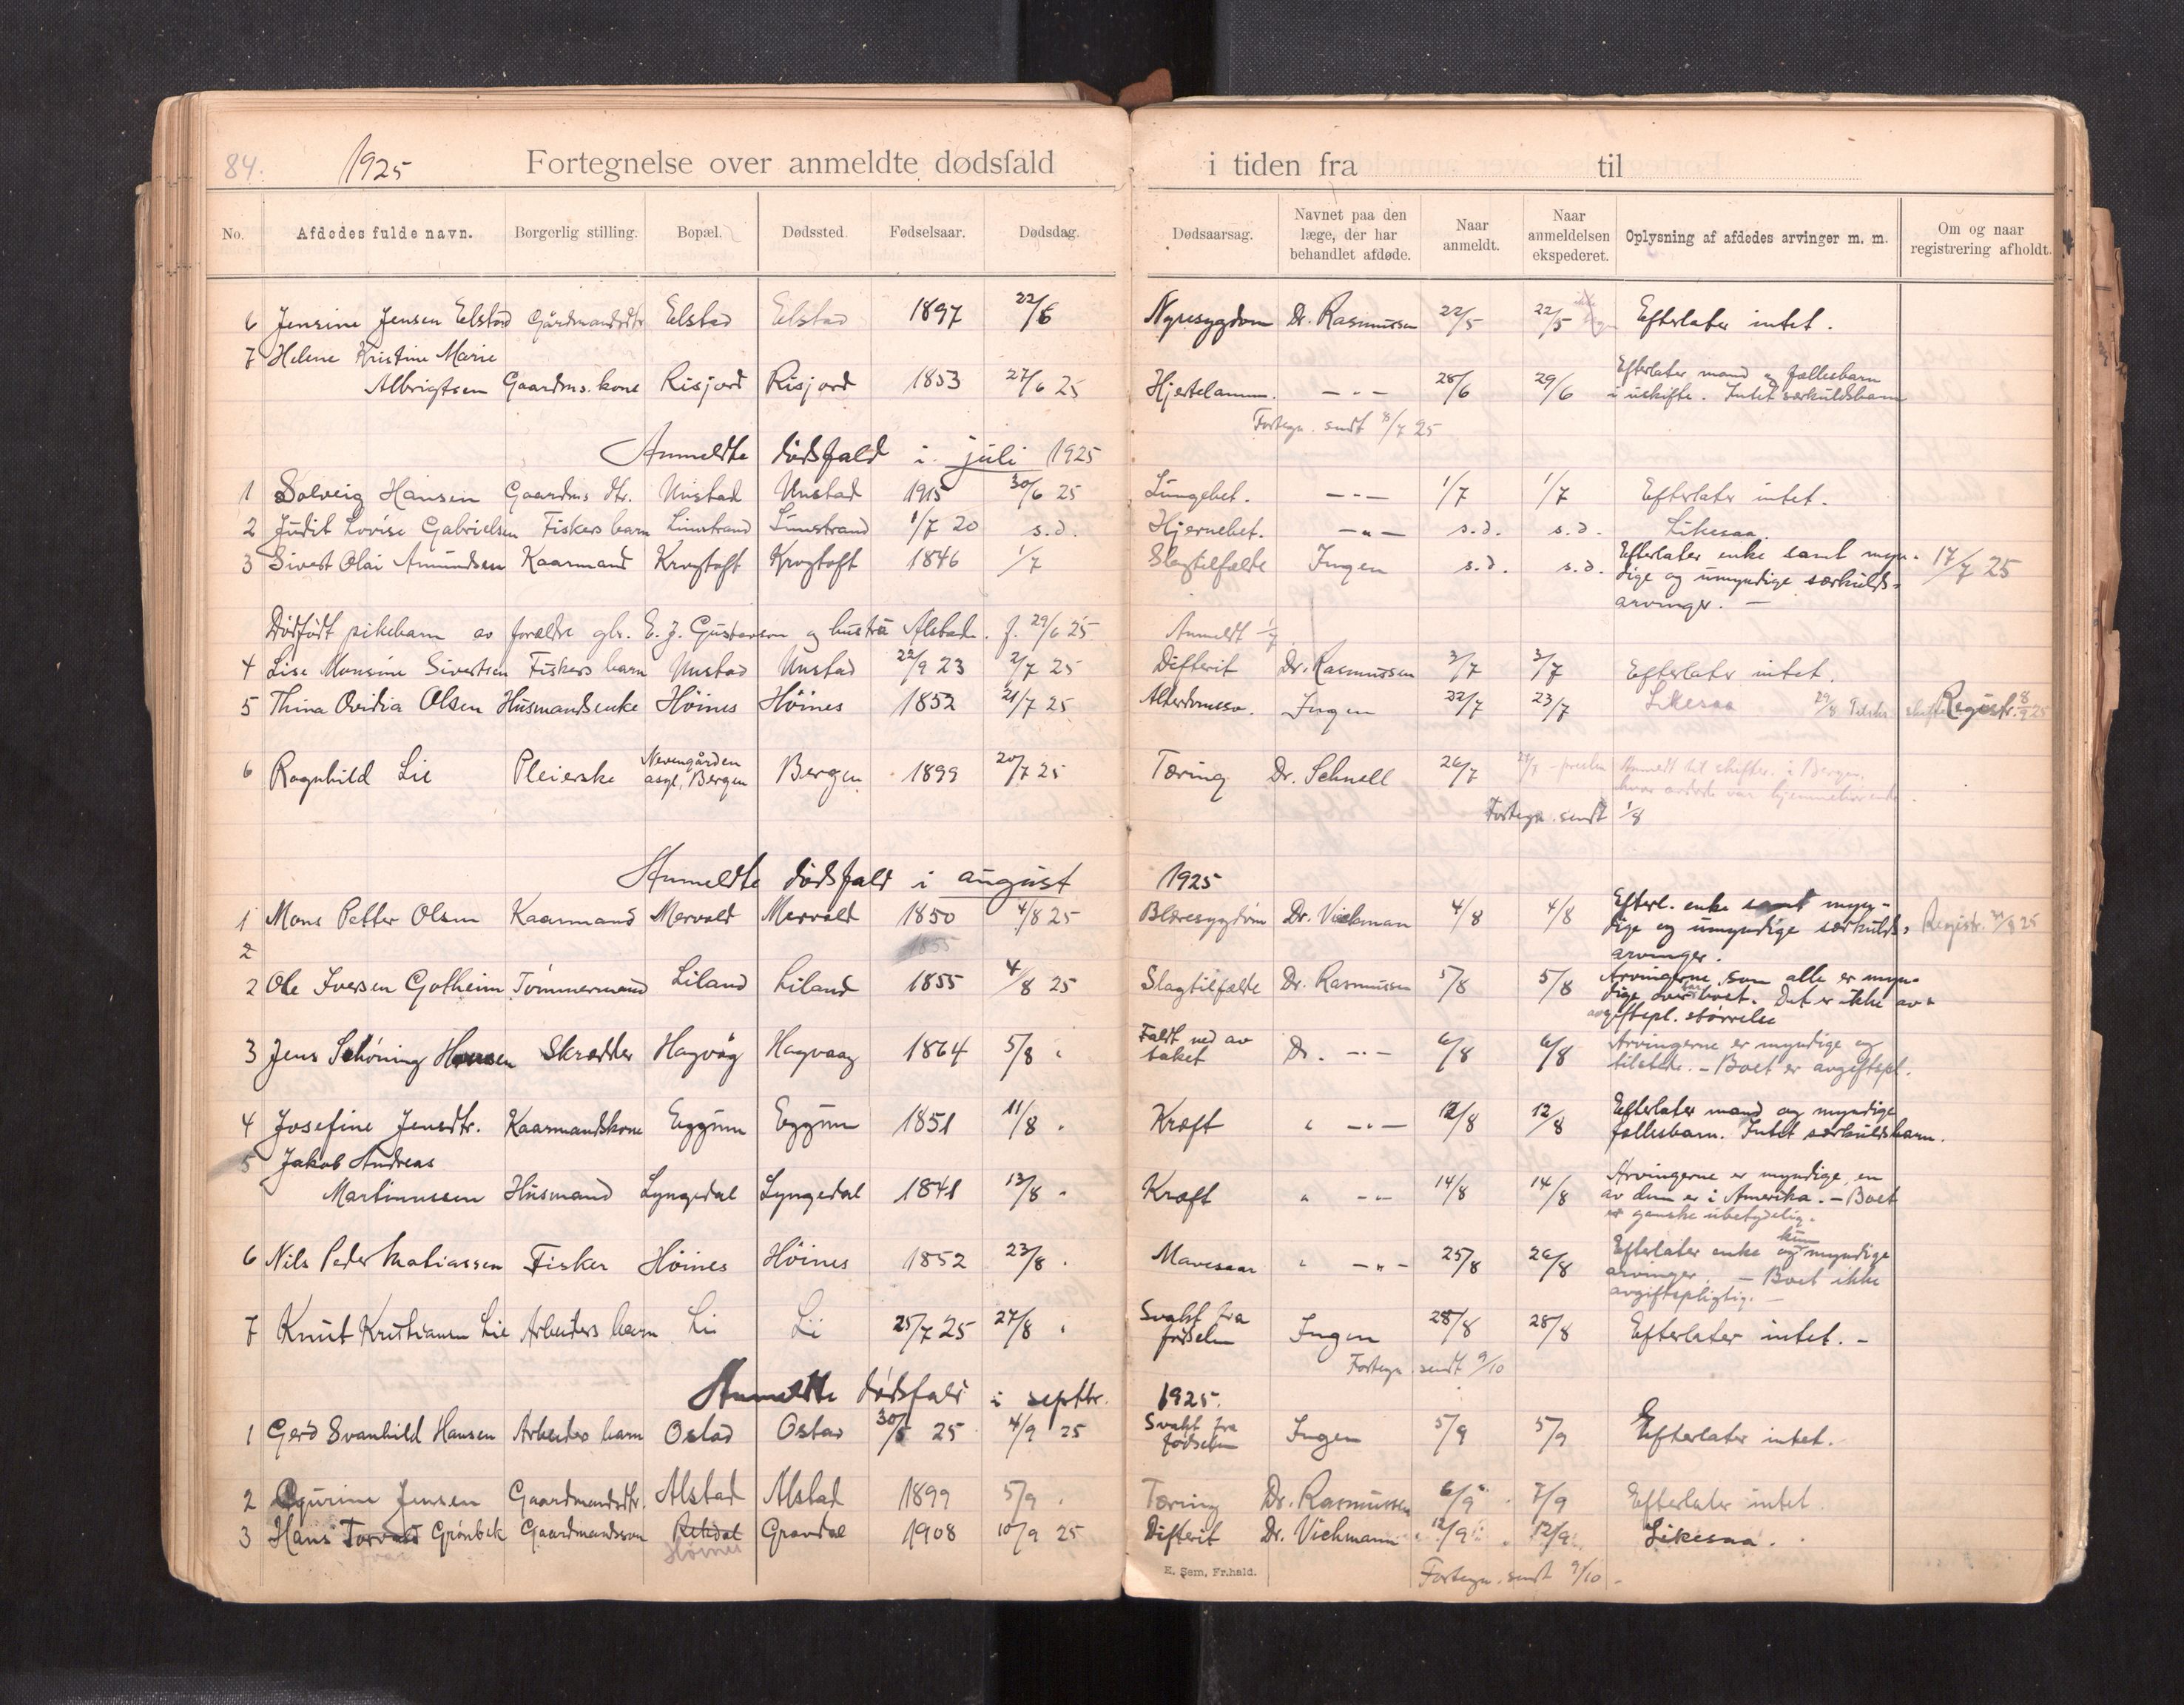 84. 1925 Fortegnelse over anmeldte dødsfald i tiden fra til
No. Afdødes fulde navn. Borgerlig stilling. Bopæl. Dødssted. Fødselsaar. Dødsdag. Dødsaarsag. Navnet paa den læge, der har behandlet afdøde. Naar anmeldt. Naar anmeldelsen ekspederet. Oplysning af afdødes arvinger m. m. Om og naar registrering afholdt.
6 Jensine Jensen Elstad Gårdmandsdtr Elstad Elstad 1897 22/6 Nyresygdom Dr. Rasmussen 22/5 22/5 Efterlater intet.
7 Helene Kristine Marie
Albrigtsen Gaardms. kone Risjord Risjord 1853 27/6 25 Hjertelamm. — " — 28/6 29/6 Efterlater mand og fællesbarn
i uskifte. Intet særkuldsbarn
Fortegn. sendt 8/7 25
Anmeldte dødsfald i juli 1925
1 Solveig Hansen Gaardms dtr. Unstad Unstad 1915 30/6 25 Lungebet. — " — 1/7 1/7 Efterlater intet.
2 Judit Lovise Gabrielsen Fiskers barn Limstrand Limstrand 1/7 20 s.d. Hjernebet. — " — s.d. s.d. Likesaa.
3 Sivert Olai Amundsen Kaarmand Krogtoft Krogtoft 1846 1/7 Slagtilfælde Ingen s.d. s.d. Efterlater enke samt myn- 17/7 25
dige og umyndige særkulds-
arvinger. —
Dødfødt pikebarn av forældre gbr. E. J. Gustavson og hustru Alstad. f. 29/6 25. Anmeldt 1/7
4 Lise Monsine Sivertsen Fiskers barn Unstad Unstad 22/9 23 2/7 25 Difterit Dr. Rasmussen 3/7 3/7 Efterlater intet.
5 Thina Ovidia Olsen Husmandsenke Höines Höines 1852 21/7 25 Alderdomssv. Ingen 22/7 23/7 Likesaa Registr. 8/9 25
6 Ragnhild Lie Pleierske Nevengården asyl, Bergen Bergen 1899 20/7 25 Tæring Dr. Schnell 26/7 Anmeldt til skifter. i Bergen,
hvor avdøde var hjemmehørende.
Fortegn. sendt 1/8
Anmeldte dødsfald i august 1925
1 Mons Petter Olsen Kaarmand Mervold Mervold 1850 4/8 25 Blæresygdom Dr. Vickman 4/8 4/8 Efterl. enke samt myn-
dige og umyndige særkulds- Registr.
arvinger.
2 1855
2 Ole Iversen Gotheim Tömmermand Liland Liland 1855 4/8 25 Slagtilfælde Dr. Rasmussen 5/8 5/8 Arvingerne, som alle er myn-
dige, over boet. Det er ikke av-
avgiftspl. størrelse
3 Jens Schöning Hansen Skrædder Hagvåg Hagvaag 1864 5/8 " Faldt ned av taket Dr. — " — 6/8 6/8 Arvingerne er myndige og
tilstede. — Boet er avgiftspl.
4 Josefine Jensdtr. Kaarmandskone Eggum Eggum 1851 11/8 " Kræft " — " — 12/8 12/8 Efterlater mand og myndige
fællesbarn. Intet særkuldsbarn.
5 Jakob Andreas
Martinussen Husmand Lyngedal Lyngedal 1841 13/8 " Kræft " — " — 14/8 14/8 Arvingerne er myndige, en
av dem er i Amerika. — Boet
er ganske ubetydelig.
6 Nils Peder Matiassen Fisker Höines Höines 1852 23/8 " Mavesaar " — " — 25/8 26/8 Efterlater enke og kun myndige
arvinger. — Boet ikke
avgiftspligtig. —
7 Knut Kristiansen Lie Arbeiders barn Li Li 25/7 25 27/8 " Svakt fra fødselen Ingen 28/8 28/8 Efterlater intet. —
Fortegn. sendt 9/10
Anmeldte dødsfald i septbr. 1925.
1 Gerd Svanhild Hansen Arbeiders barn Ostad Ostad 30/5 25 4/9 25 Svakt fra fødselen Ingen 5/9 5/9 Efterlater intet.
2 Jensen Gaardmandsdtr. Alstad Alstad 1899 5/9 " Tæring Dr. Rasmussen 6/9 7/9 Efterlater intet.
3 Hans Torvald Grönbek Gaardmandssön Höines Gravdal 1908 10/9 25 Difterit Dr. Vickmann 12/9 12/9 Likesaa.
E. Sem, Fr.hald.
Fortegn. sendt 9/10 —